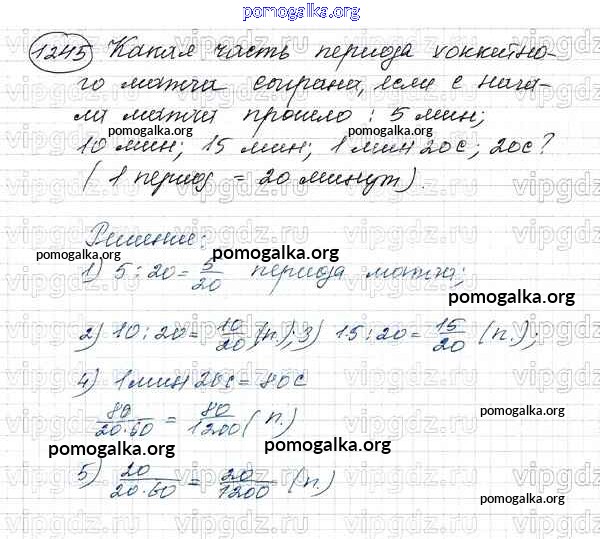 pomogalka.org
1245 Какая часть периода хоккейно-
го матча сыграна, если с нача-
ла матча прошло: 5 мин;
pomogalka.org pomogalka.org
10 мин; 15 мин; 1 мин 20с; 20с?
(1 период = 20 минут).
Решение:
pomogalka.org pomogalka.org
1) 5:20=5/20 периода матча;
pomogalka.org
2) 10:20=10/20 (п.); 3) 15:20=15/20 (п.);
4) 1 мин 20с = 80с
pomogalka.org
80/20·60 = 80/1200 (п.)
pomogalka.org pomogalka.org
5) 20/20·60 = 20/1200 (п.)
pomogalka.org pomogalka.org
vipgdz.ru